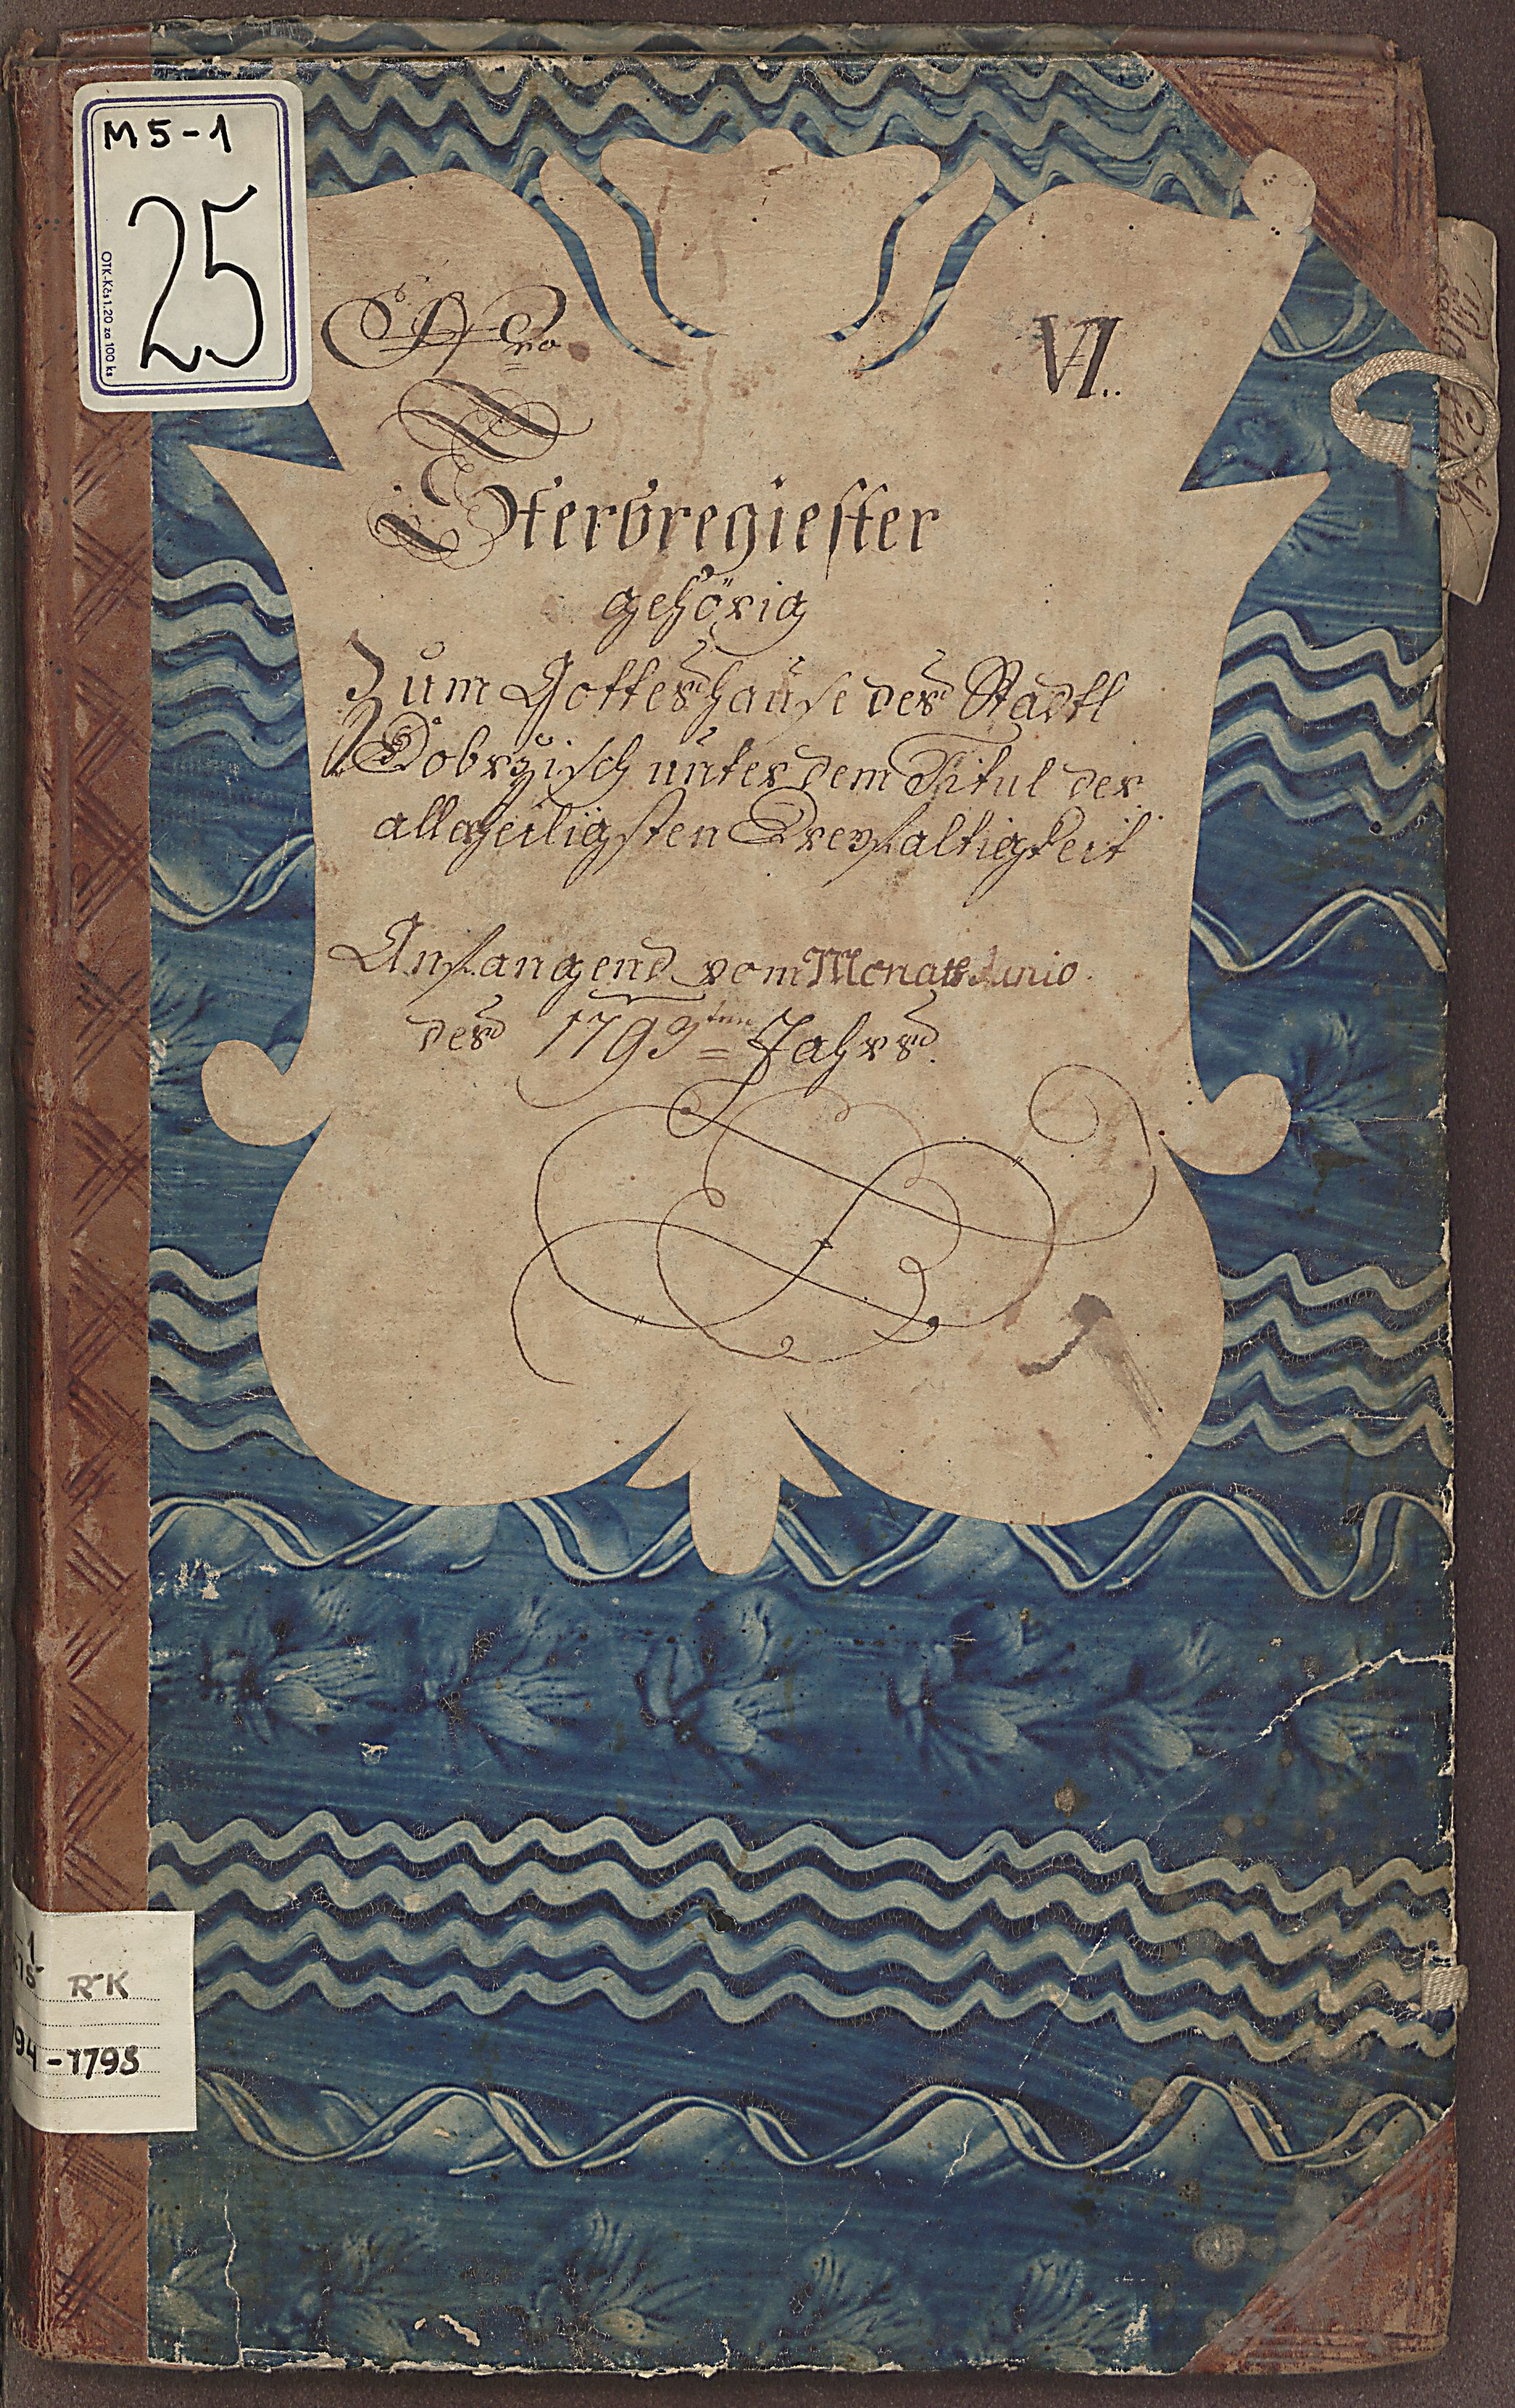 M 5-1
25
OTK-Kčs 1.20 za 100 ks
Nro VI..
Sterbregiester
gehörig
Zum Gotteshause des Stadtl
Dobrzisch unter dem Titul der
allerheiligsten Dreyfaltigkeit
Anfangend vom Monate Junio
des 1793ten Jahrs.
1
RK
94-1793